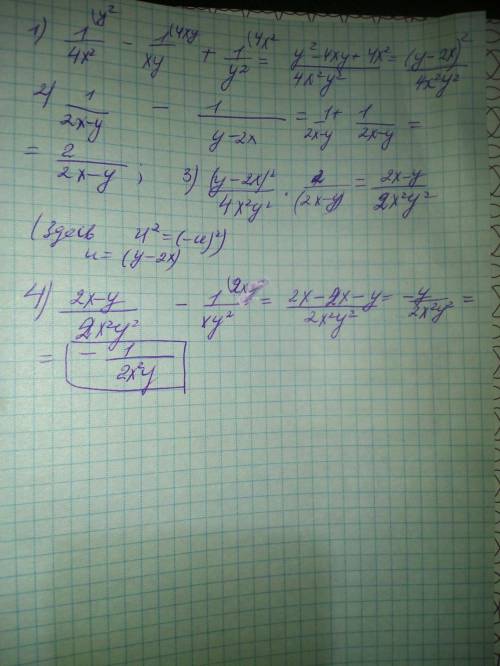 1) 1/4x² (y² - 1/xy (4xy + 1/y² (4x² = y²-4xy+4x²/4x²y² = (y-2x)²/4x²y²
2) 1/2x-y - 1/y-2x = 1/2x-y + 1/2x-y =
= 2/2x-y ; 3) (y-2x)²/4x²y² · 2/(2x-y) = 2x-y/2x²y²
(Здесь u²=(-u)²)
u=(y-2x)
4) 2x-y/2x²y² - 1/xy² (2x = 2x-2x-y/2x²y² = -y/2x²y² =
= - 1/2x²y